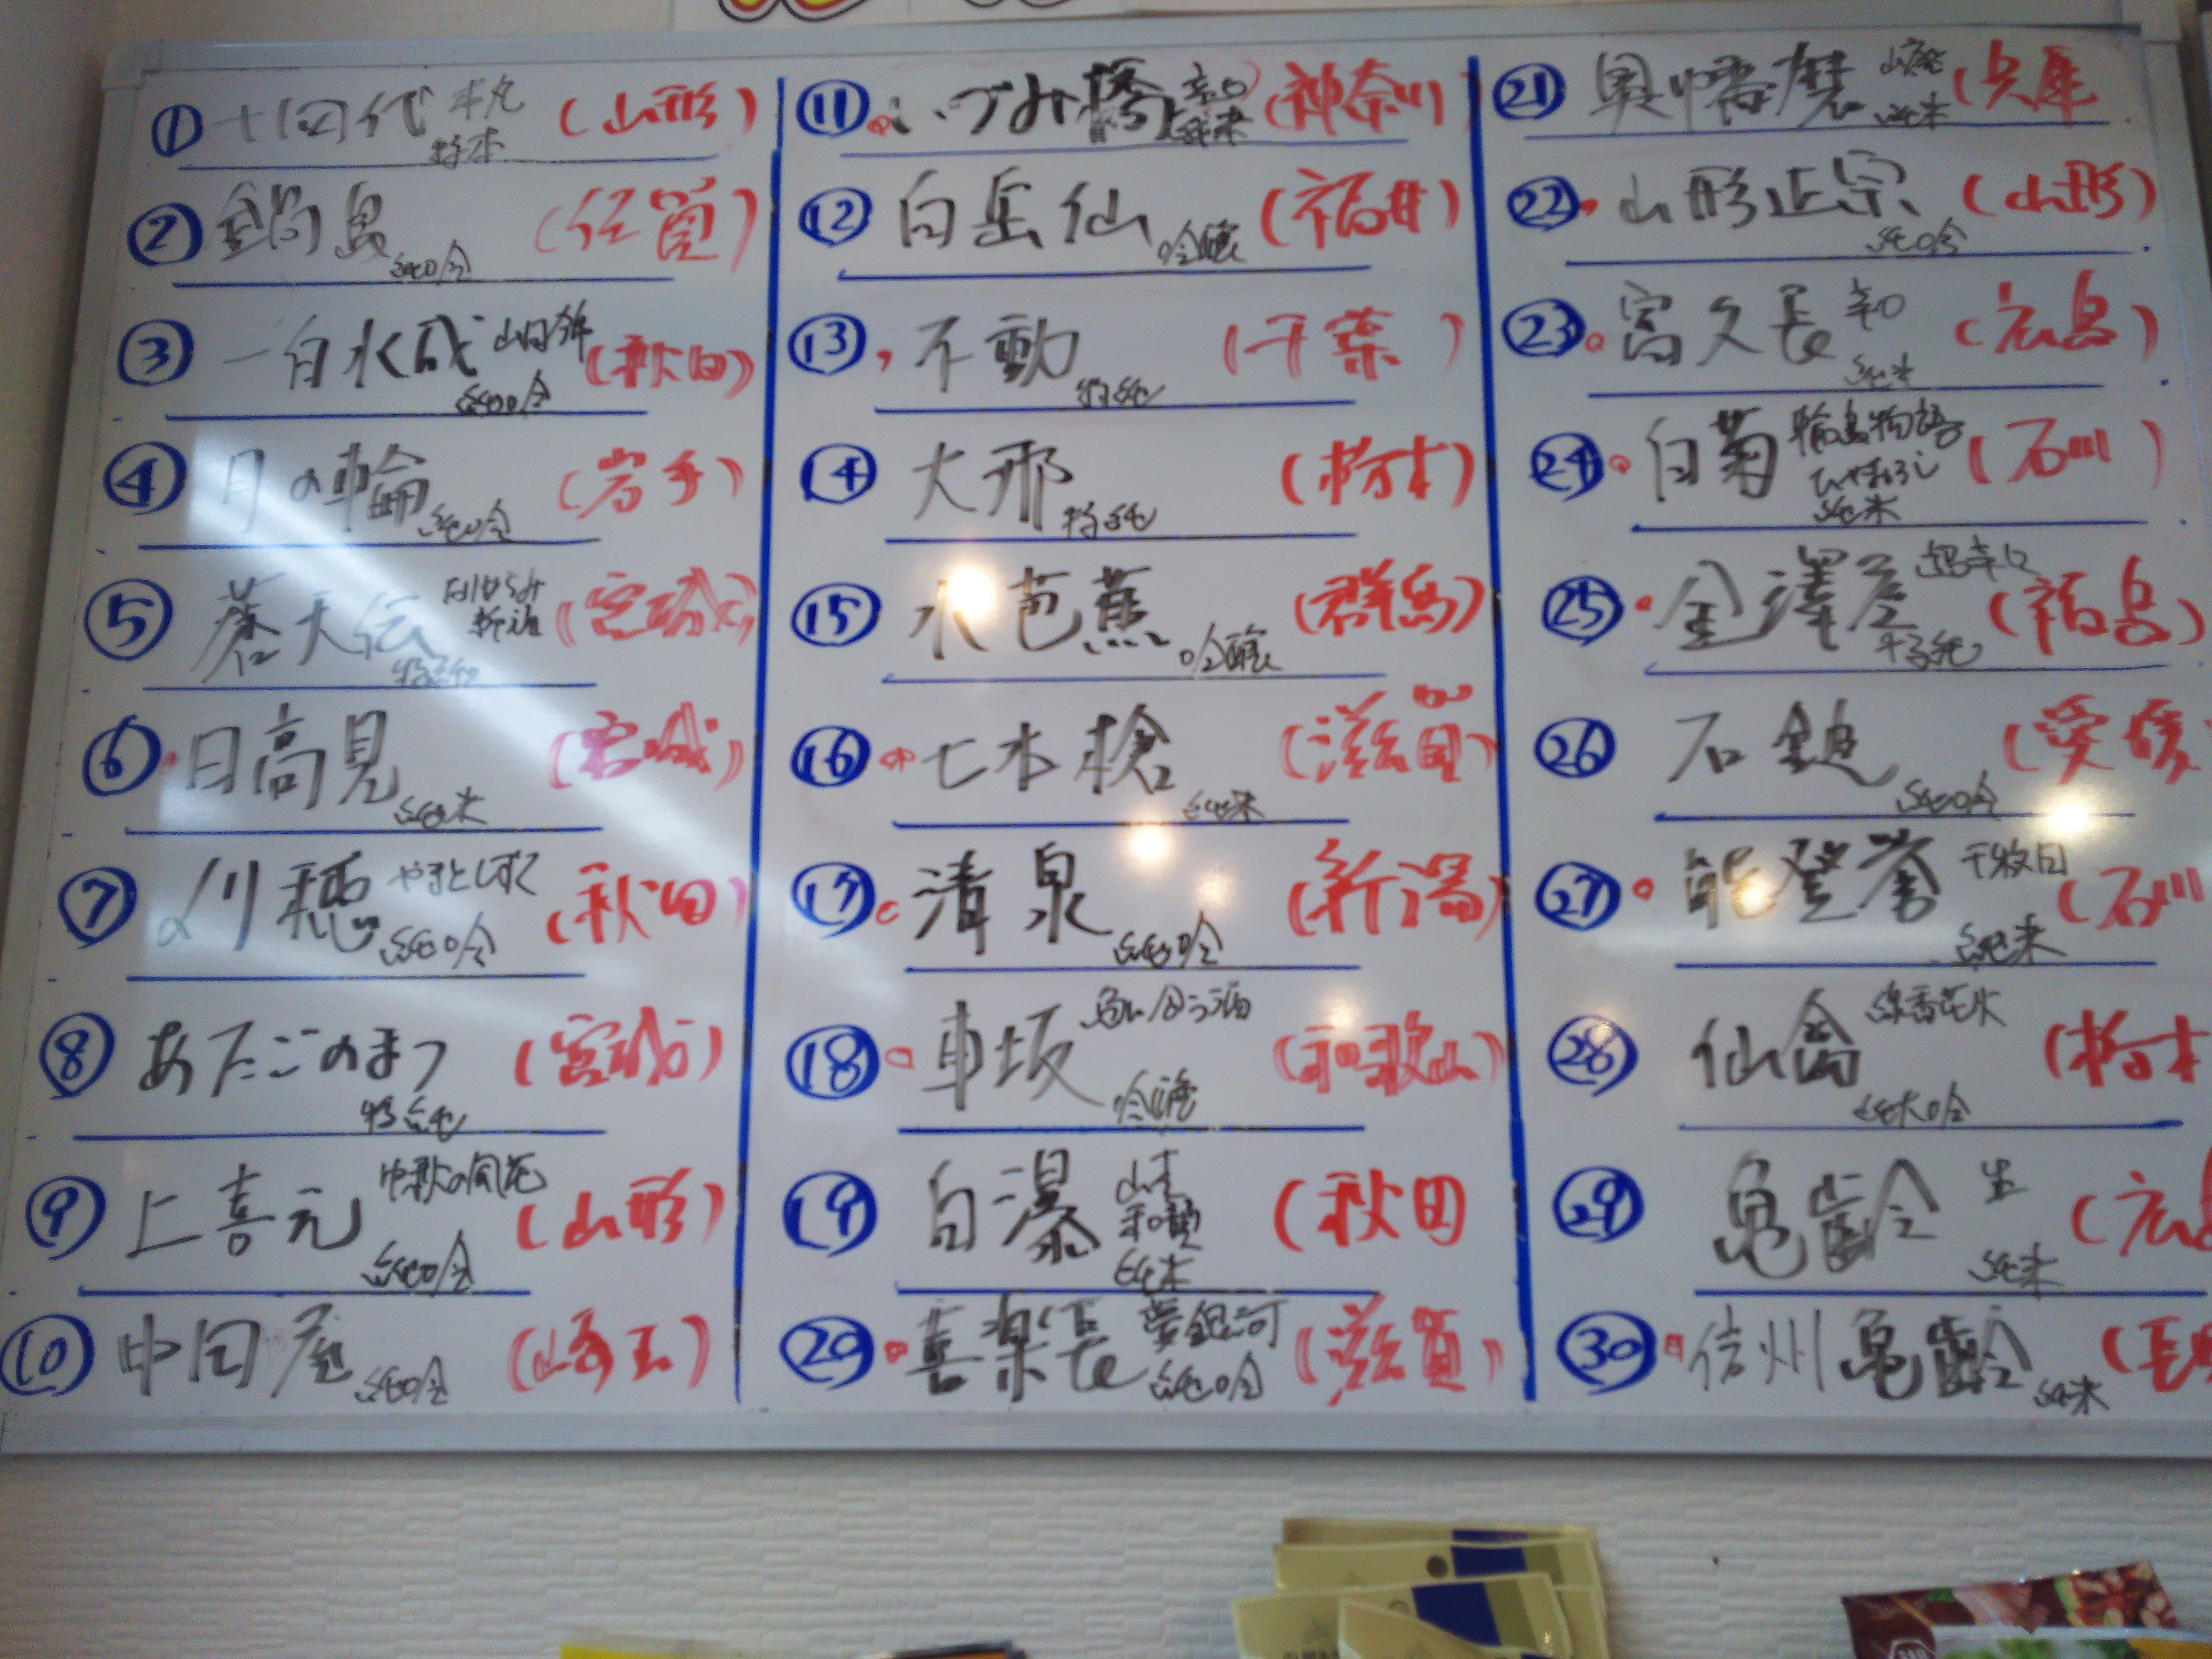 ① 十四代 本丸 特本 (山形)
② 鍋島 純吟 (佐賀)
③ 一白水成 純吟 (秋田)
④ 月の輪 純吟 (岩手)
⑤ 蒼天伝 特純 (宮城)
⑥ 日高見 純米 (宮城)
⑦ 刈穂 やまとしずく 純吟 (秋田)
⑧ あたごのまつ 特純 (宮城)
⑨ 上喜元 純吟 (山形)
⑩ 中田屋 純吟 (埼玉)
⑪ いづみ橋 辛口 純米 (神奈川)
⑫ 白岳仙 吟醸 (福井)
⑬ 不動 特純 (千葉)
⑭ 大那 特純 (栃木)
⑮ 水芭蕉 吟醸 (群馬)
⑯ 七本槍 純米 (滋賀)
⑰ 清泉 純吟 (新潟)
⑱ 車坂 吟醸 (和歌山)
⑲ 白瀑 山本 和韻 純米 (秋田
⑳ 喜楽長 夢銀河 純吟 (滋賀)
㉑ 奥播磨 山廃 純米 (兵庫
㉒ 山形正宗 純吟 (山形)
㉓ 富久長 辛口 純米 (広島)
㉔ 白菊 輪島物語 ひやおろし 純米 (石川)
㉕ 金澤屋 超辛口 特純 (福島)
㉖ 石鎚 純吟 (愛媛
㉗ 能登誉 千枚田 純米 (石川
㉘ 仙禽 線香花火 純大吟 (栃木
㉙ 亀齢 生 純米 (広島
㉚ 信州亀齢 純米 (長野